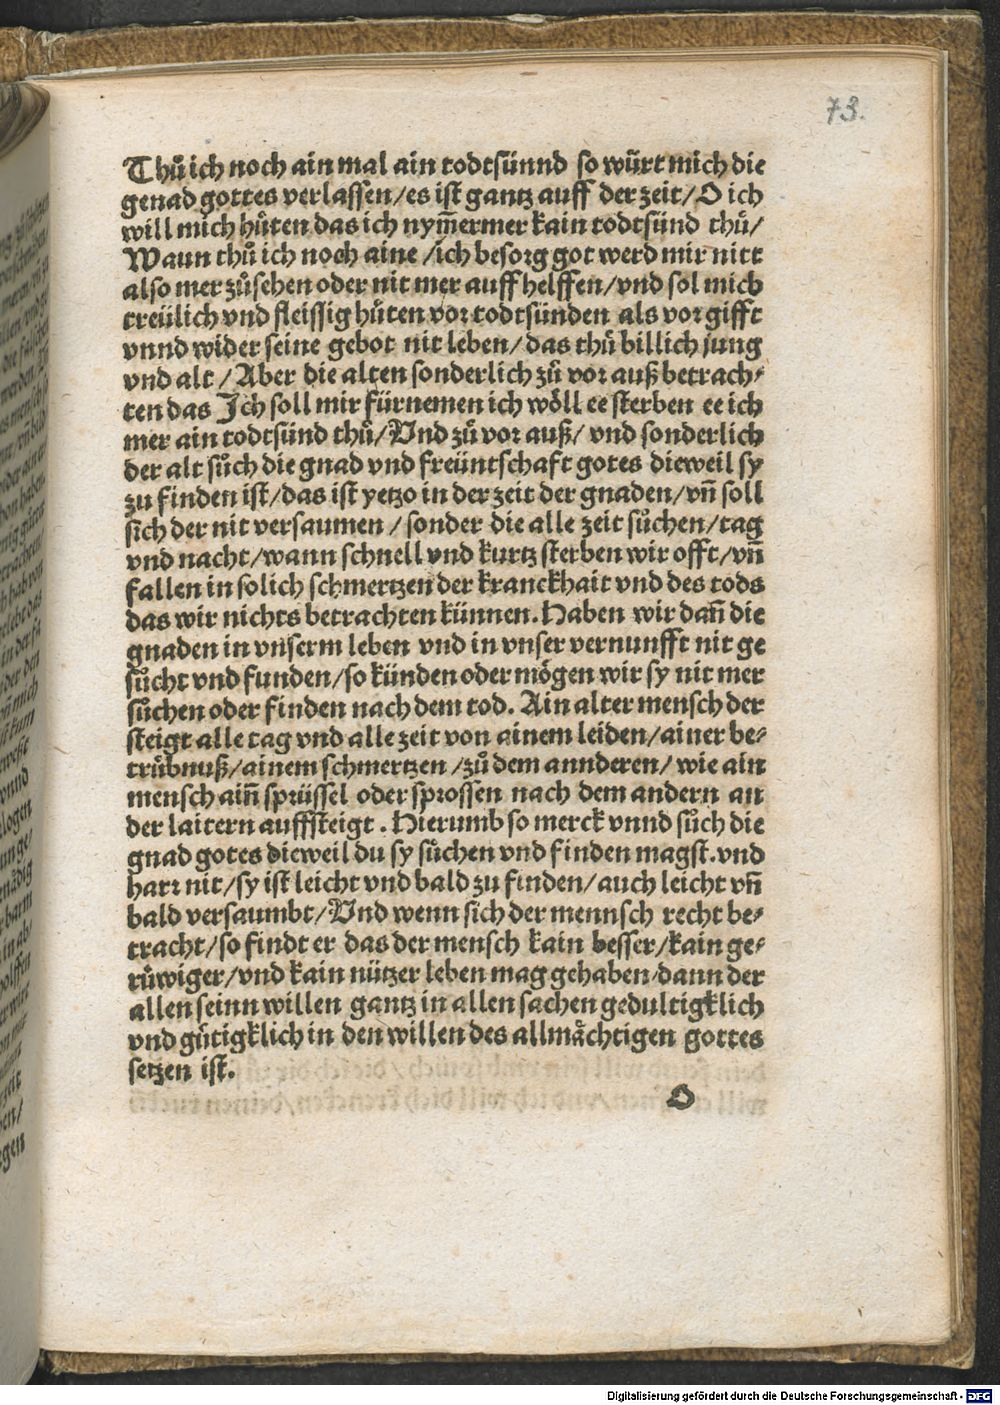 73.
Thů ich noch ain mal ain todtsünnd so würt mich die
genad gottes verlassen/es ist gantz auff der zeit/O ich
will mich hůten das ich nym̄ermer kain todtsünd thů/
Waun thů ich noch aine /ich besorg got werd mir nitt
also mer zůsehen oder nit mer auff helffen/vnd sol mich
treülich vnd fleissig hůten vor todtsünden als vor gifft
vnnd wider seine gebot nit leben/das thů billich jung
vnd alt /Aber die alten sonderlich zů vor auß betrach⸗
ten das Ich soll mir fürnemen ich wöll ee sterben ee ich
mer ain todtsünd thů/Vnd zů vor auß/ vnd sonderlich
der alt sůch die gnad vnd freüntschaft gotes dieweil sy
zu finden ist/das ist yetzo in der zeit der gnaden/vn̄ soll
sich der nit versaumen /sonder die alle zeit sůchen/tag
vnd nacht/wann schnell vnd kurtz sterben wir offt/vn̄
fallen in solich schmertzen der kranckhait vnd des tods
das wir nichts betrachten künnen. Haben wir dan̄ die
gnaden in vnserm leben vnd in vnser vernunfft nit ge
sůcht vnd funden/so künden oder mögen wir sy nit mer
sůchen oder finden nach dem tod. Ain alter mensch der
steigt alle tag vnd alle zeit von ainem leiden/ainer be⸗
trůbnuß/ainem schmertzen /zů dem annderen/ wie ain
mensch ain̄ sprüssel oder sprossen nach dem andern an
der laitern auffsteigt . Hierumb so merck vnnd sůch die
gnad gotes dieweil du sy sůchen vnd finden magst.vnd
harꝛ nit/sy ist leicht vnd bald zu finden/auch leicht vn̄
bald versaumbt/Vnd wenn sich der mennsch recht be⸗
tracht/so findt er das der mensch kain besser/kain ge⸗
růwiger/vnd kain nützer leben mag gehaben dann der
allen seinn willen gantz in allen sachen gedultigklich
vnd gůtigklich in den willen des allmåchtigen gottes
setzen ist.
O
Digitalisierung gefördert durch die Deutsche Forschungsgemeinschaft - DFG